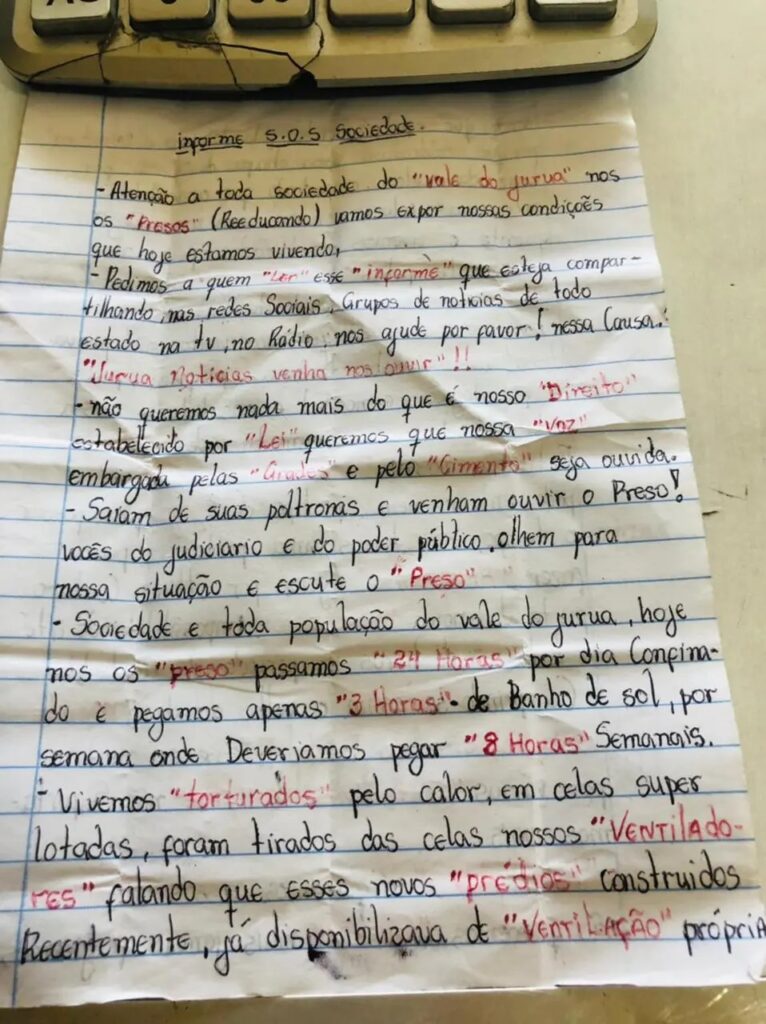 informe S.O.S Sociedade.
- Atenção a toda sociedade do "vale do jurua" nos
os "Presos" (Reeducando) vamos expor nossas condições
que hoje estamos vivendo,
- Pedimos a quem "Ler" esse "informe" que esteja compar-
tilhando, nas redes Sociais, Grupos de noticias de todo
estado na tv, no Rádio, nos ajude por favor! nessa Causa.!
"Jurua Noticias venha nos ouvir"!!
- não queremos nada mais do que é nosso "Direito"
estabelecido por "Lei" queremos que nossa "Voz"
embargada pelas "Grades" e pelo "Cimento" seja ouvida.
- Saiam de suas poltronas e venham ouvir o Preso!
vocês do judiciario e do poder público, olhem para
nossa situação e escute o "Preso"
- Sociedade e toda população do vale do jurua, hoje
nos os "preso" passamos "24 Horas" por dia Confina-
do e pegamos apenas "3 Horas" - de Banho de sol, por
semana onde Deveriamos pegar "8 Horas" Semanais.
- Vivemos "torturados" pelo calor, em celas super
lotadas, foram tirados das celas nossos "VENTILADO-
RES" falando que esses novos "prédios" construidos
Recentemente, já disponibilizava de "VENTILAÇÃO" própria